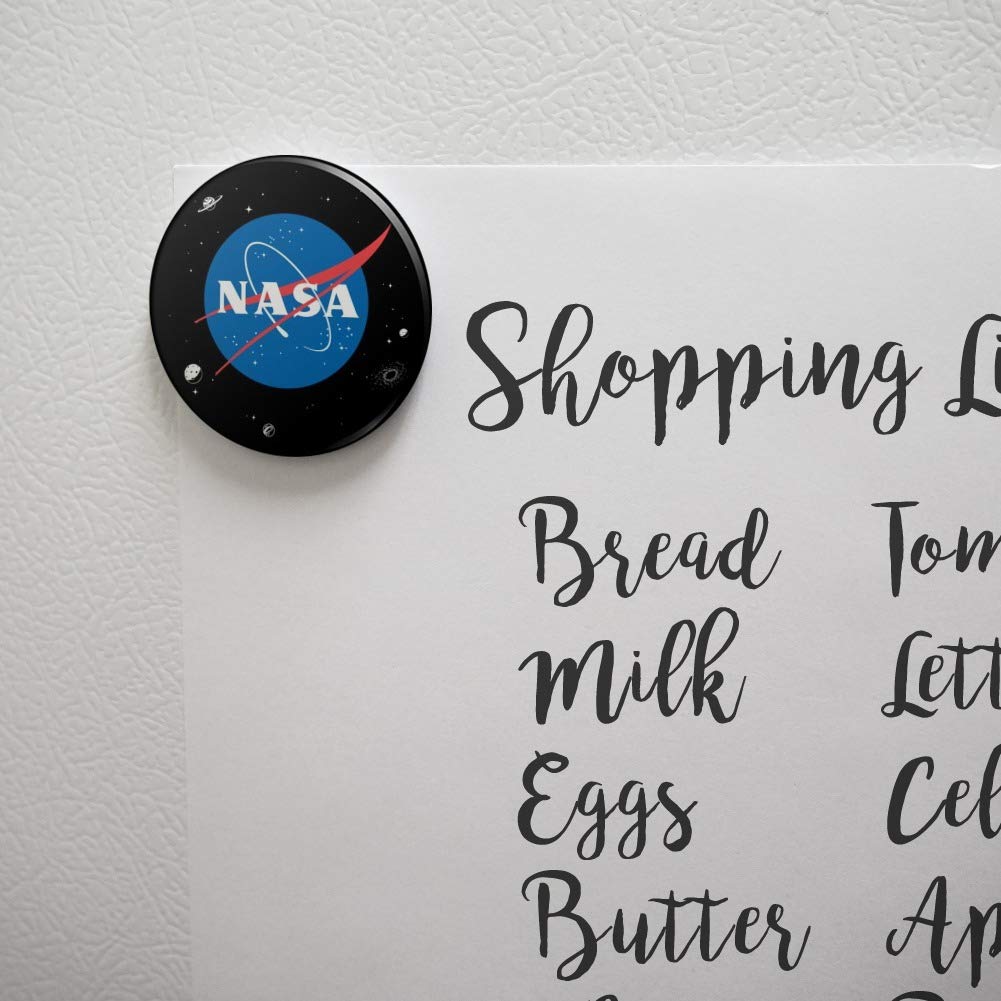 NASA
Shopping Li
Bread Tom
Milk Lett
Eggs Cel
Butter Ap